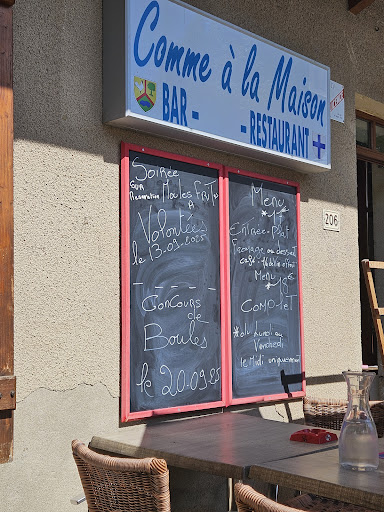 Comme à la Maison
BAR - - RESTAURANT +
Soirée
Sur Moules FRIT
Reservation A
Volontée
le 13.09.2025
Concours
de
Boules
le 20.09.25
Menu
Entrée-plat
Fromage ou dessert
café
Menu 18€
COMPLET
*du Lundi au
Vendredi
le Midi uniquement
206